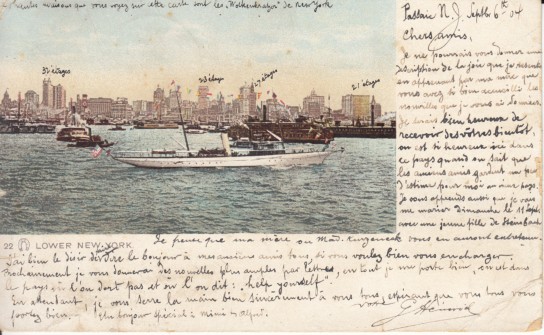 hautes maisons que vous voyez sur cette carte sont les "Wolkenkratzer" de New York
Passaic N.J. Septb 6th 04
Chers amis,
Je ne pourrais vous donner une
description de la joie que je
en apprenant par ma mère que
vous avez si bien accueilli les
nouvelles que je vous ai
Je serais bien heureux de
recevoir des vôtres bientôt,
on est si heureux ici dans
ce pays quand on sait que
les anciens amis gardent un peu
d'estime pour moi
Je vous apprends aussi que je vais
me marier Dimanche le 11 Septb
avec une jeune fille de
31 étages
23 étages
17 étages
21 étages
22 LOWER NEW YORK
Je pense que ma mère ou Mad. vous en auront entretenu.
J'ai bien le désir de dire le bonjour à mes anciens amis tous, si vous voulez bien vous en charger.
Prochainement je vous donnerai des nouvelles plus amples par lettres, en tout je me porte bien, on est dans
le pays où l'on dort pas et où l'on dit: "help yourself".
En attendant, je vous serre la main bien sincèrement à vous tous, espérant que vous tous vous
portez bien. Un bonjour spécial à